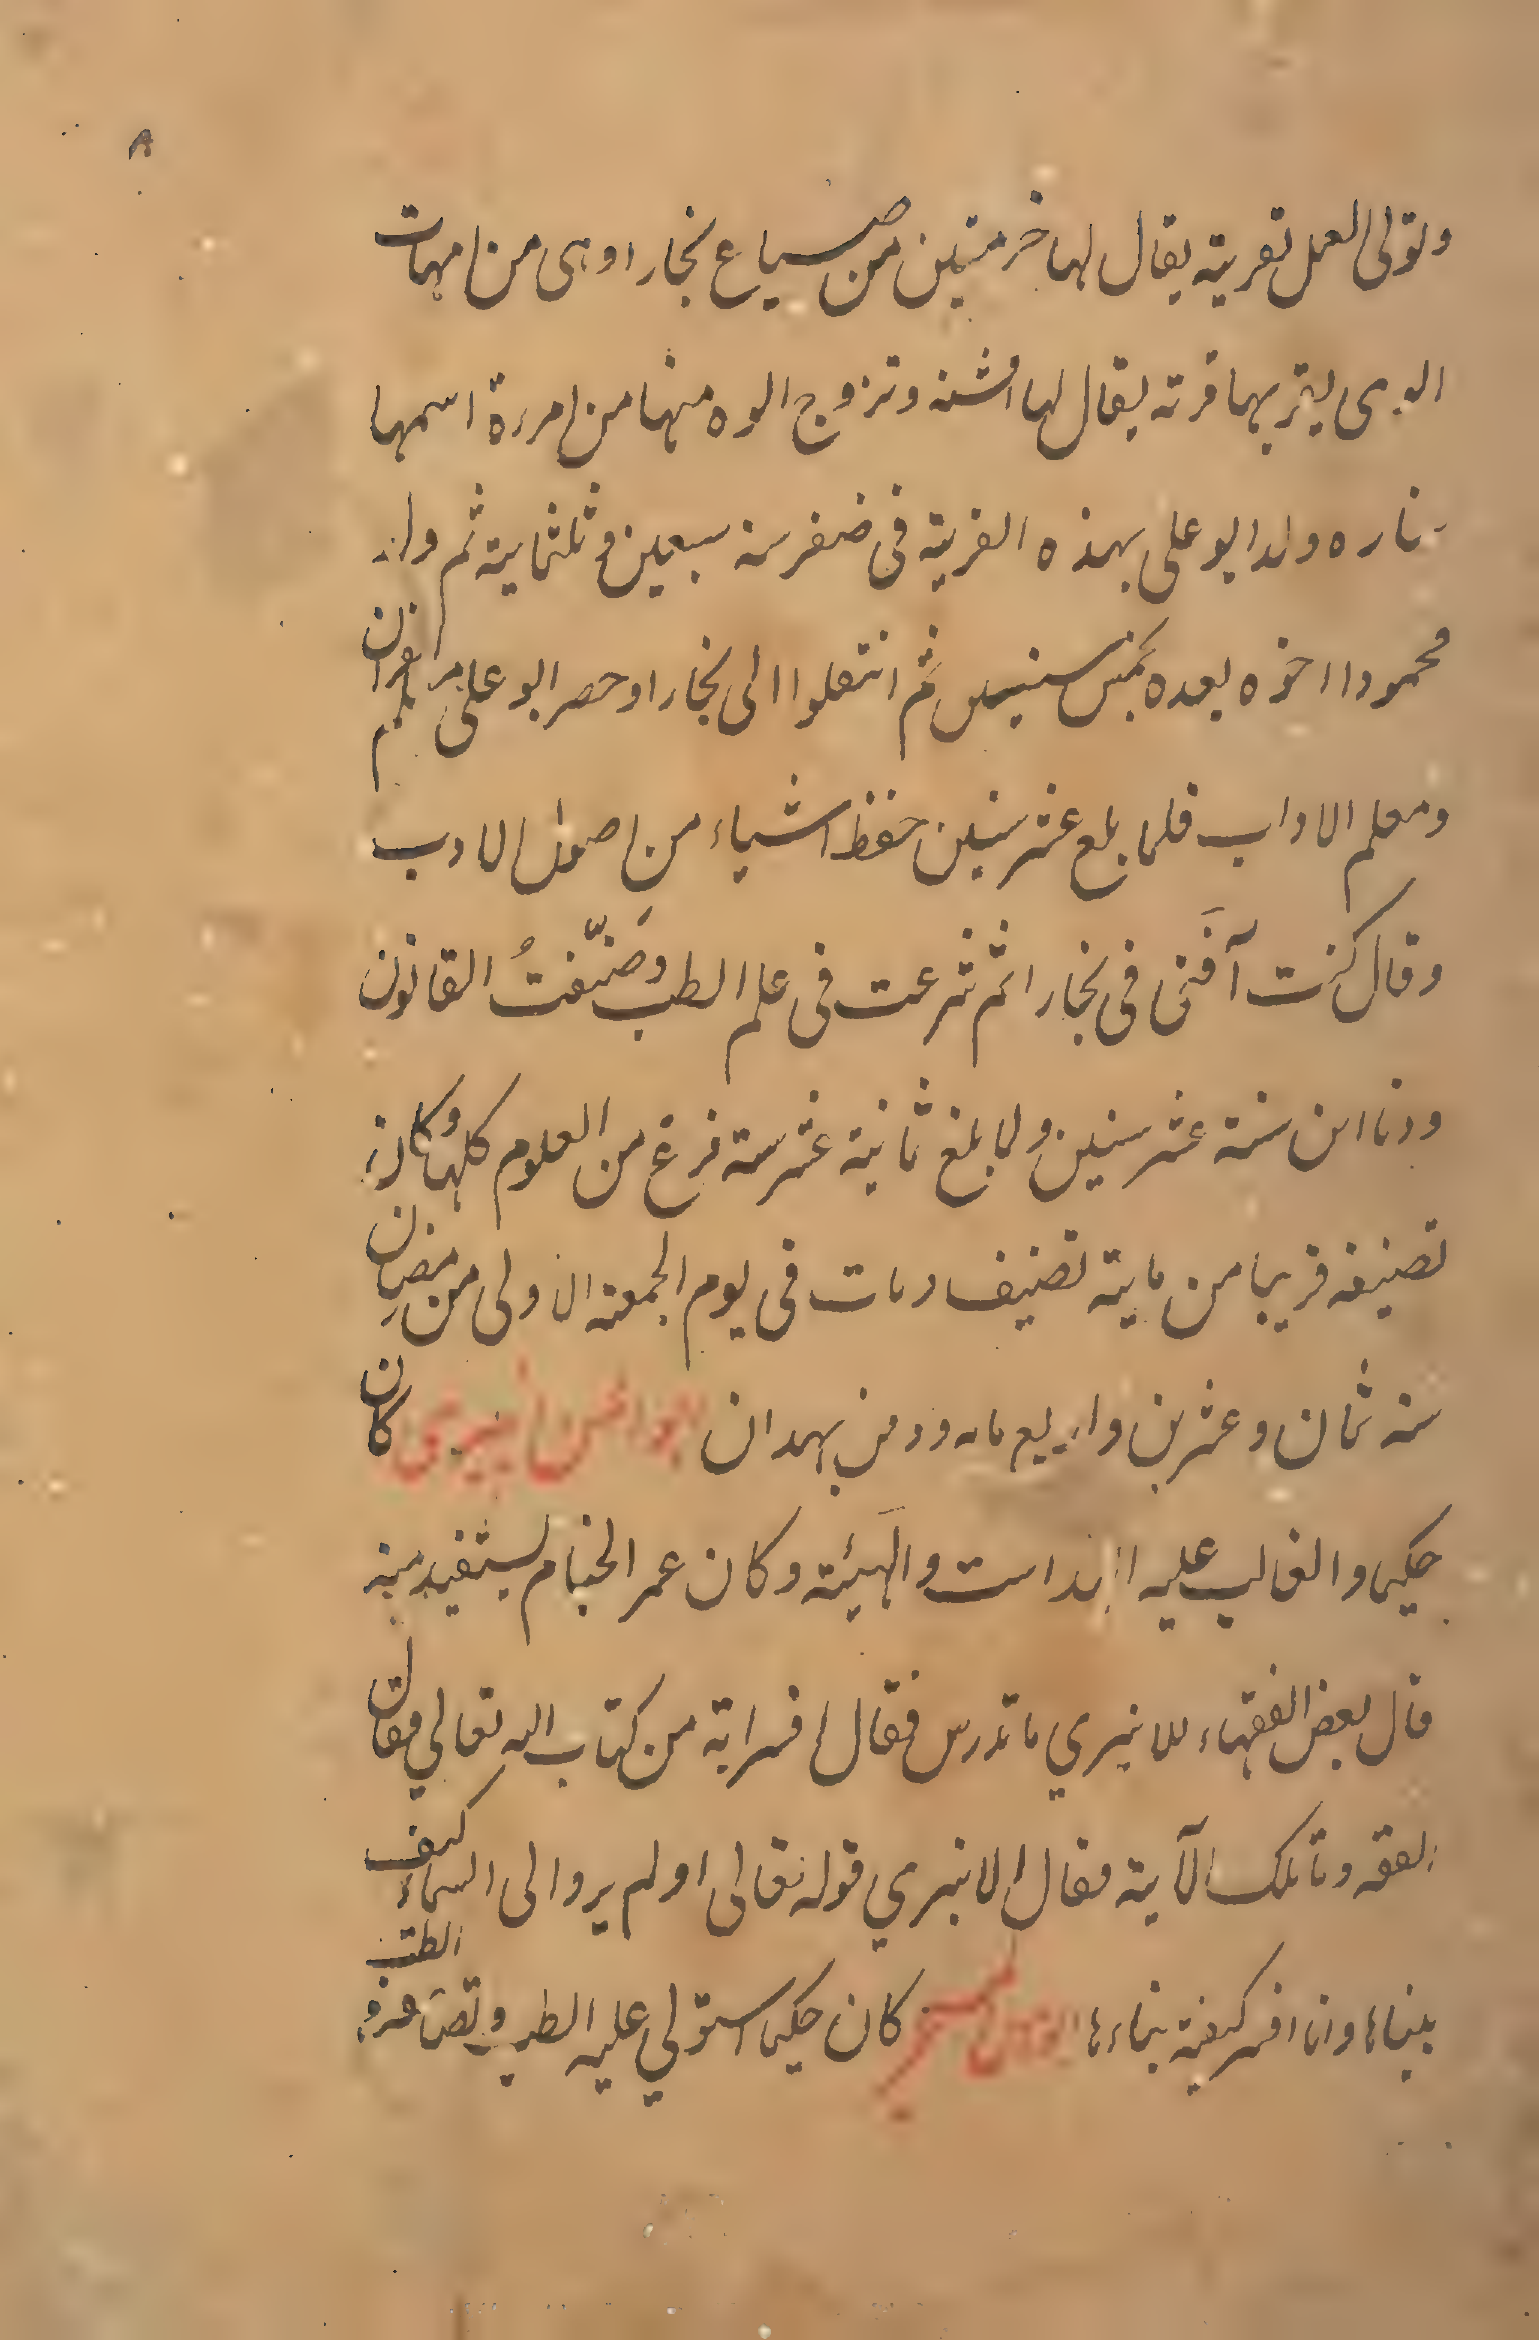 وتولى العمل بقرية يقال لها خرميثين من ضياع بخارا وهى من امهات
القرى بقربها قرية يقال لها افشنه وتزوج ابوه منها من امرءة اسمها
ستاره ولد ابو على بهذه القرية فى صفر سنه سبعين و ثلثماية ثم ولد
محمودا اخوه بعده بخمس سنين ثم انتقلوا الى بخارا وحضر ابو على معلم القران
ومعلم الاداب فلما بلغ عشر سنين حفظ اشياء من اصول الادب
وقال كنت آفتى فى بخارا ثم شرعت فى علم الطب وصنّفتُ القانون
وانا ابن ستة عشر سنين ولما بلغ ثمانية عشر سنة فرغ من العلوم كلها وكان
تصنيفه قريبا من ماية تصنيف ومات فى يوم الجمعة الاولى من رمضان
سنه ثمان وعشرين واربع مايه ودفن بهمدان ابو الحسن الانبرى كان
حكيما والغالب عليه الهندسة والهيئة وكان عمر الخيام يستفيد منه
قال بعض الفقهاء للانبري ما تدرس فقال افسر اية من كتاب الله تعالي فقال
الفقيه وما تلك الآية فقال الانبري قوله تعالى اولم يروا الى السماء كيف
بنيناها وانا افسر كيفية بناءها كان حكيما استولي عليه الطب وتصانيفه الطب